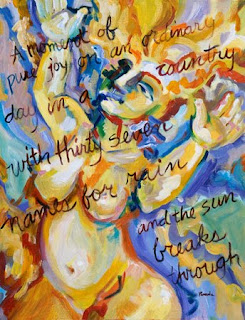 A moment of
pure joy on an ordinary
day in a country
with thirty seven
names for rain
and the sun
breaks
through